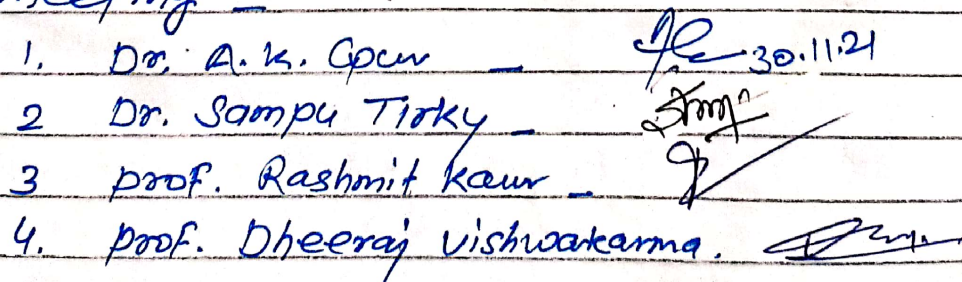 meeting –
1. Dr. A.K. Gour – 30.11.21
2 Dr. Sampu Tirky –
3 prof. Rashmit kaur –
4. prof. Dheeraj vishwakarma.